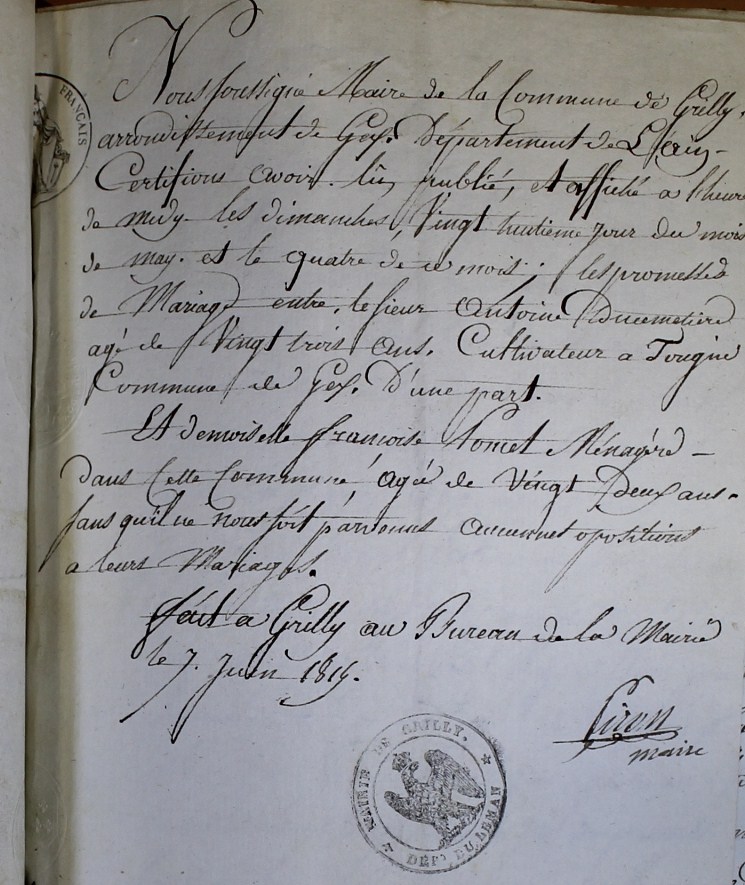 FRANÇAIS
Nous soussigné Maire de la Commune de Grilly,
arrondissement de Gex. Département de L'ain,
Certifions avoir lû, publié, et affiché a l'heure
de midy les dimanches, Vingt huitieme jour du mois
de may. et le quatre de ce mois; les promesses
de Mariage entre, le sieur Antoine Ducimetière
agé de Vingt trois ans. Cultivateur a Tougin
Commune de Gex. D'une part.
Et demoiselle francoise Ménagére
dans Cette Commune agée de Vingt Deux ans.
sans qu'il ne nous soit parvenus aucunnes opositions
a leurs Mariages.
fait a Grilly au Bureau de la Mairie
le 7. Juin 1815.
Giron
maire
MAIRIE DE GRILLY.
DÉPT. DU LÉMAN